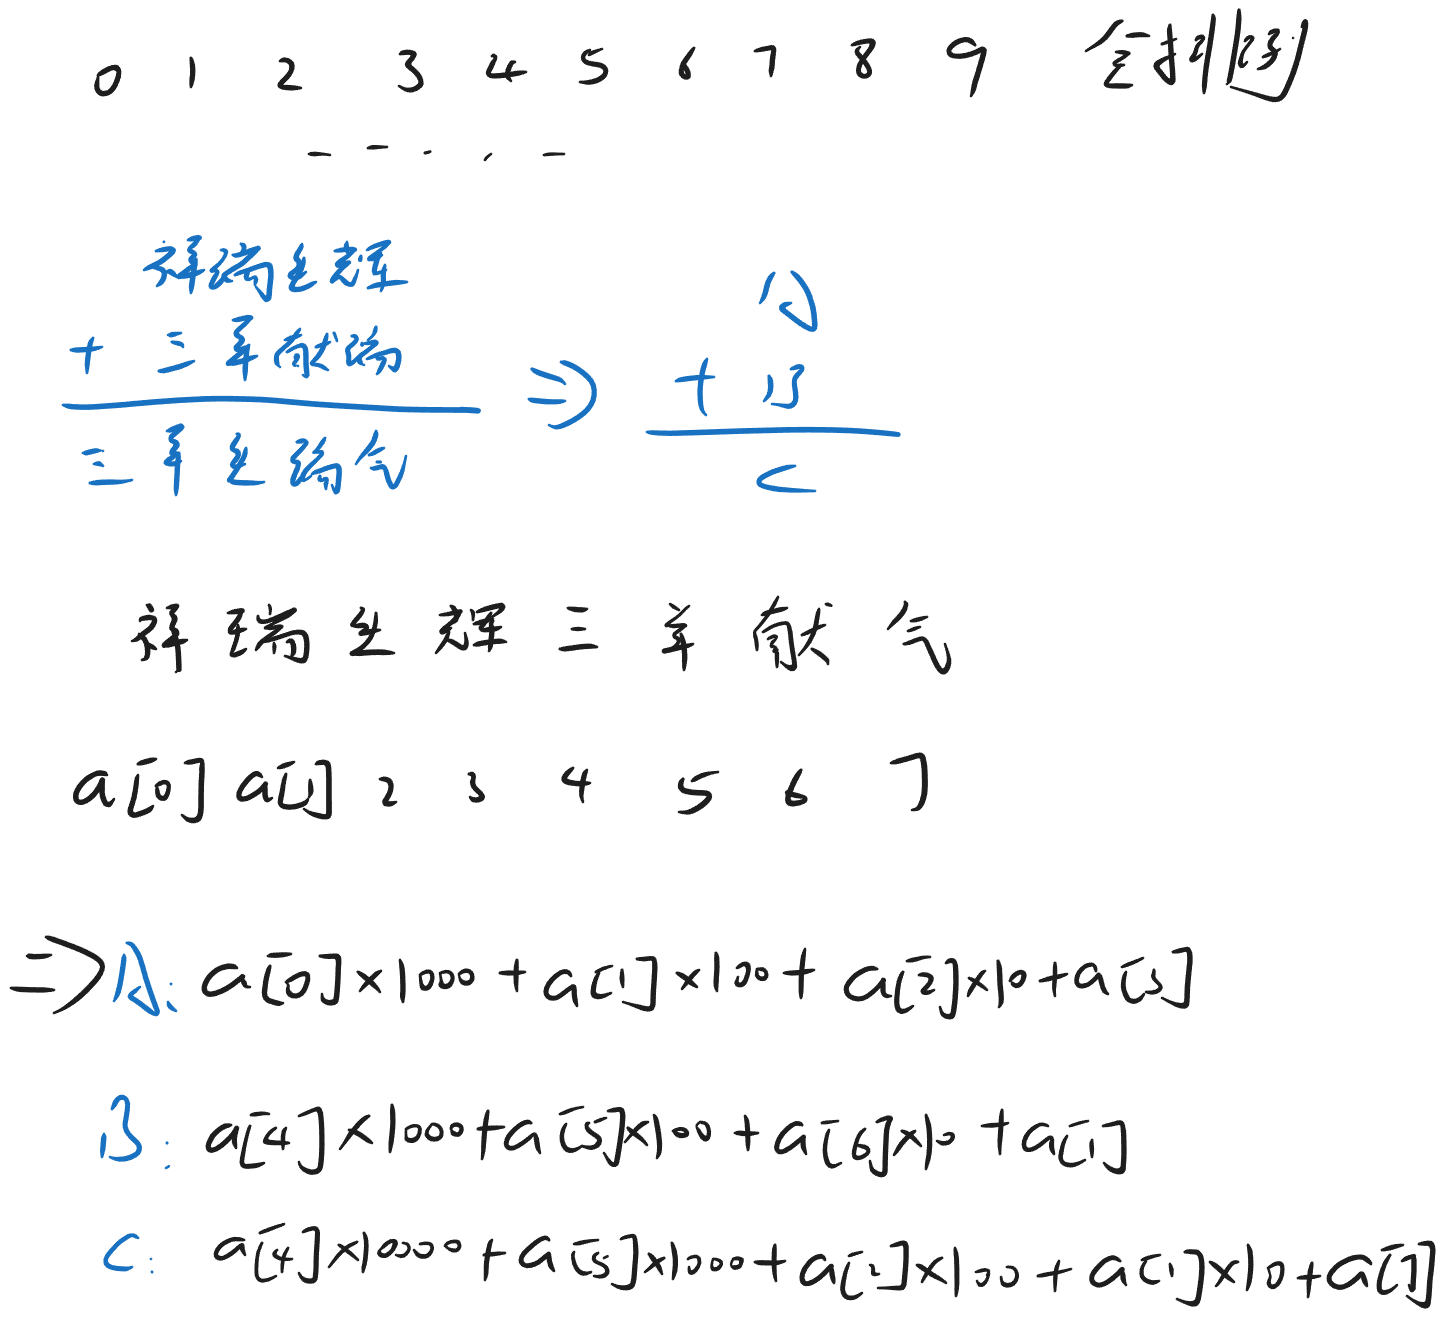 0 1 2 3 4 5 6 7 8 9 全排列
祥瑞生辉
+ 三羊献瑞
三羊生瑞气
⇒
A
+ B
C
祥 瑞 生 辉 三 羊 献 气
a[0] a[1] 2 3 4 5 6 7
⇒ A: a[0]×1000 + a[1]×100 + a[2]×10 + a[3]
B: a[4]×1000 + a[5]×100 + a[6]×10 + a[1]
C: a[4]×10000 + a[5]×1000 + a[2]×100 + a[1]×10 + a[7]